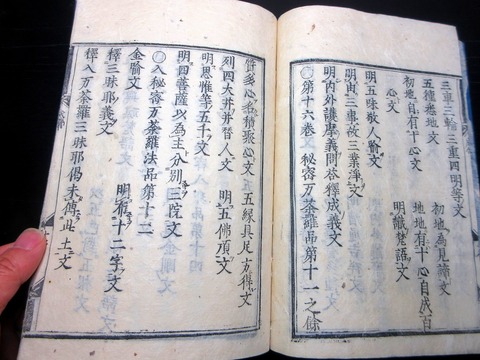 三車三輪三重四明等文
五種悉地文　初地為見諦文
初地自有十心文　地地有十心自成百
心文　明識梵語文
明五味文
明三事故三業淨文
明内外護摩義問答釋成義文
〇第十六卷　秘密万荼羅品第十一之餘
質多心者積聚心文　五縁具足方得文
列四大并人文　明五佛頂文
明等五千文
明四菩薩以為主分別三院文
〇入秘密万荼羅法品第十二
金文
釋三昧耶義文　明布十二字文
釋入万荼羅三昧耶偈未傳此土文